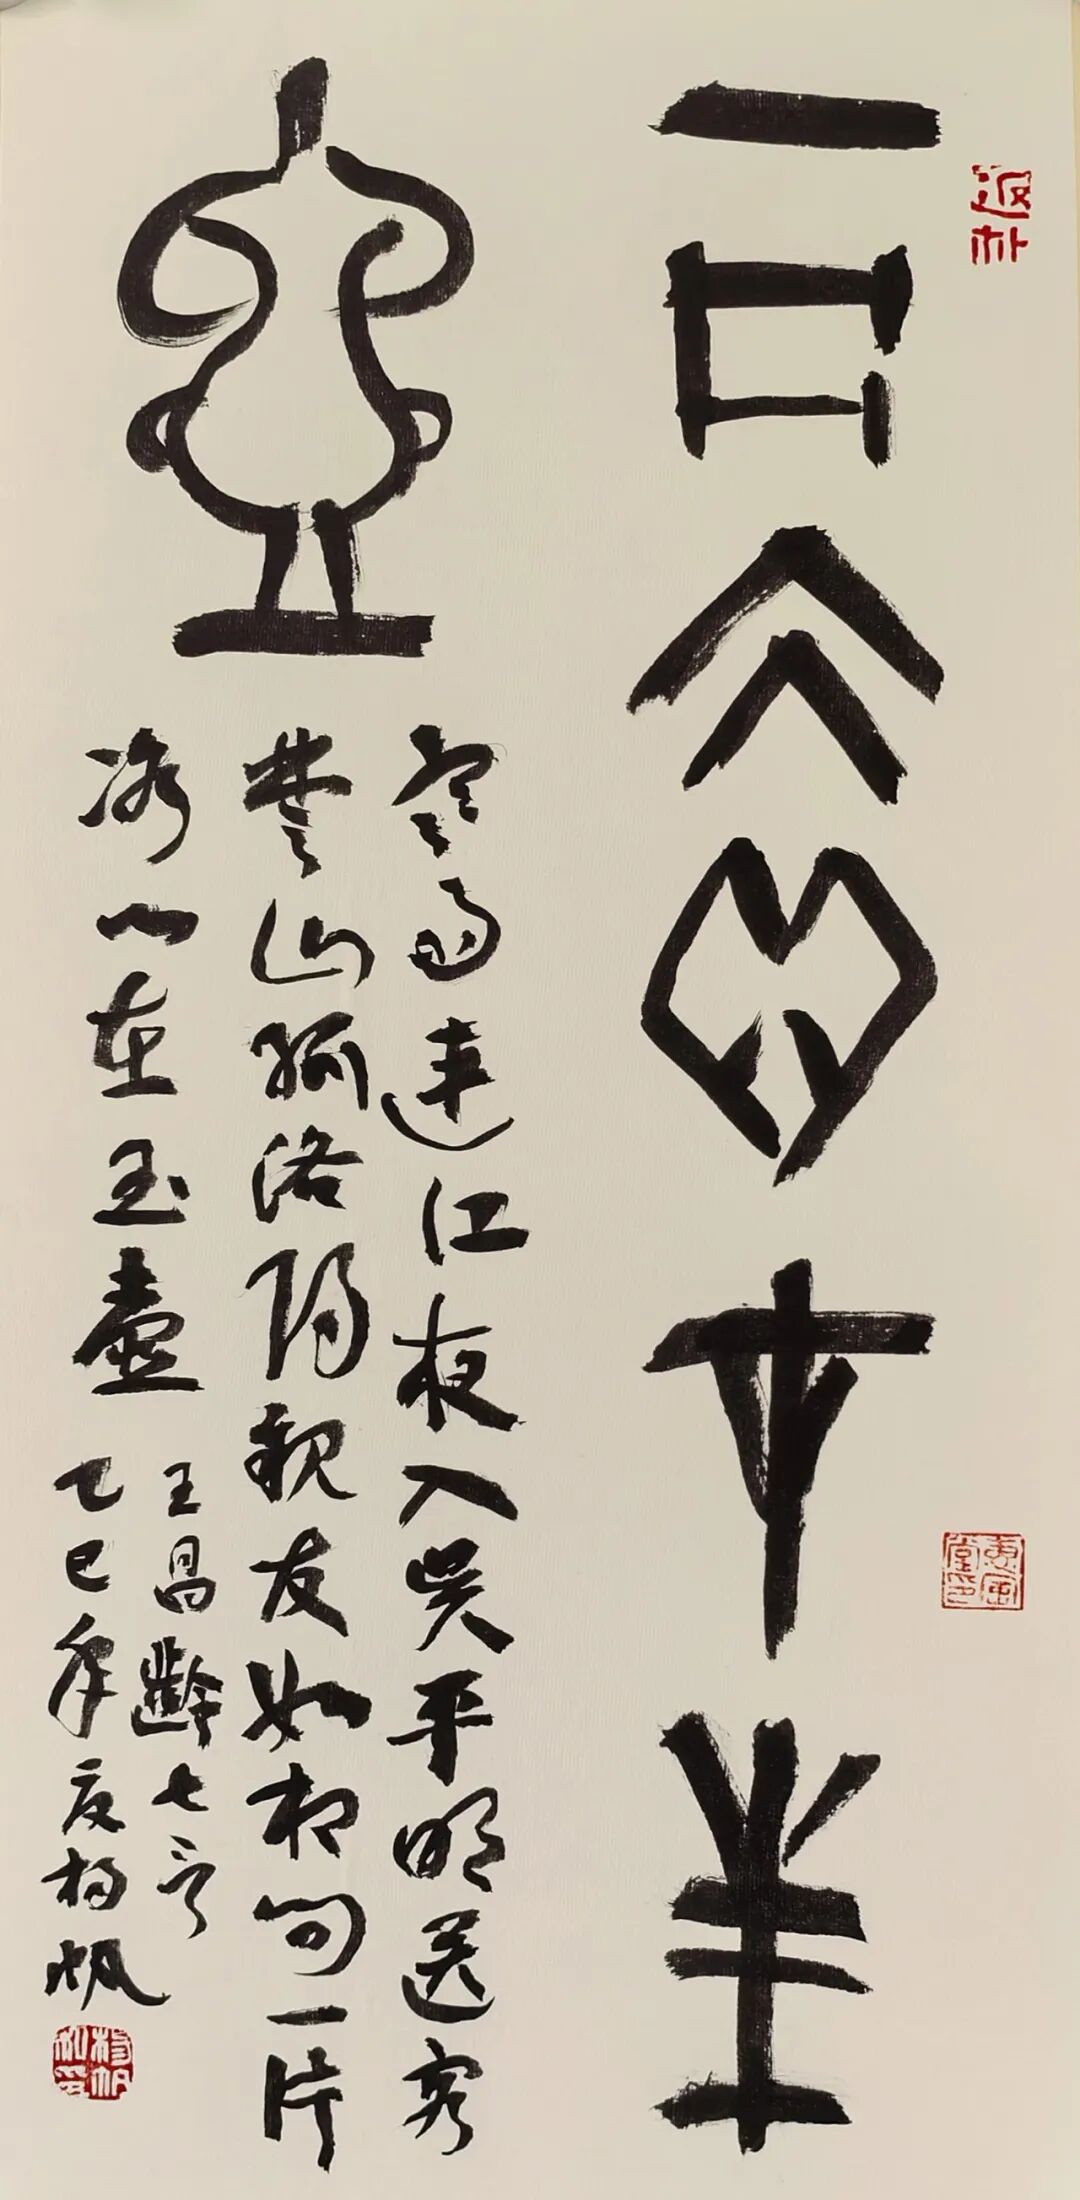 返朴
一片冰心在玉
壺
寒雨連江夜入吴平明送客
楚山孤洛陽親友如相問一片
冰心在玉壺
王昌齡七言
乙巳年夏楊帆